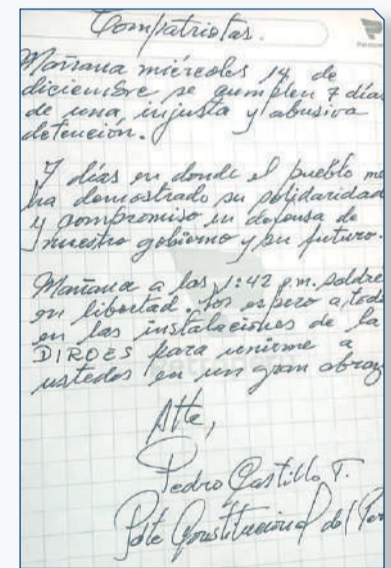 Compatriotas.
Mañana miércoles 14 de
diciembre se cumplen 7 días
de una injusta y abusiva
detención.
7 días en donde el pueblo me
ha demostrado su solidaridad
y compromiso en defensa de
nuestro gobierno y su futuro.
Mañana a las 1:42 p.m. saldré
en libertad. Los espero a tod
en las instalaciones de la
DIROES para unirme a
ustedes en un gran abraz
Atte,
Pedro Castillo T.
Pdte Constitucional del Per